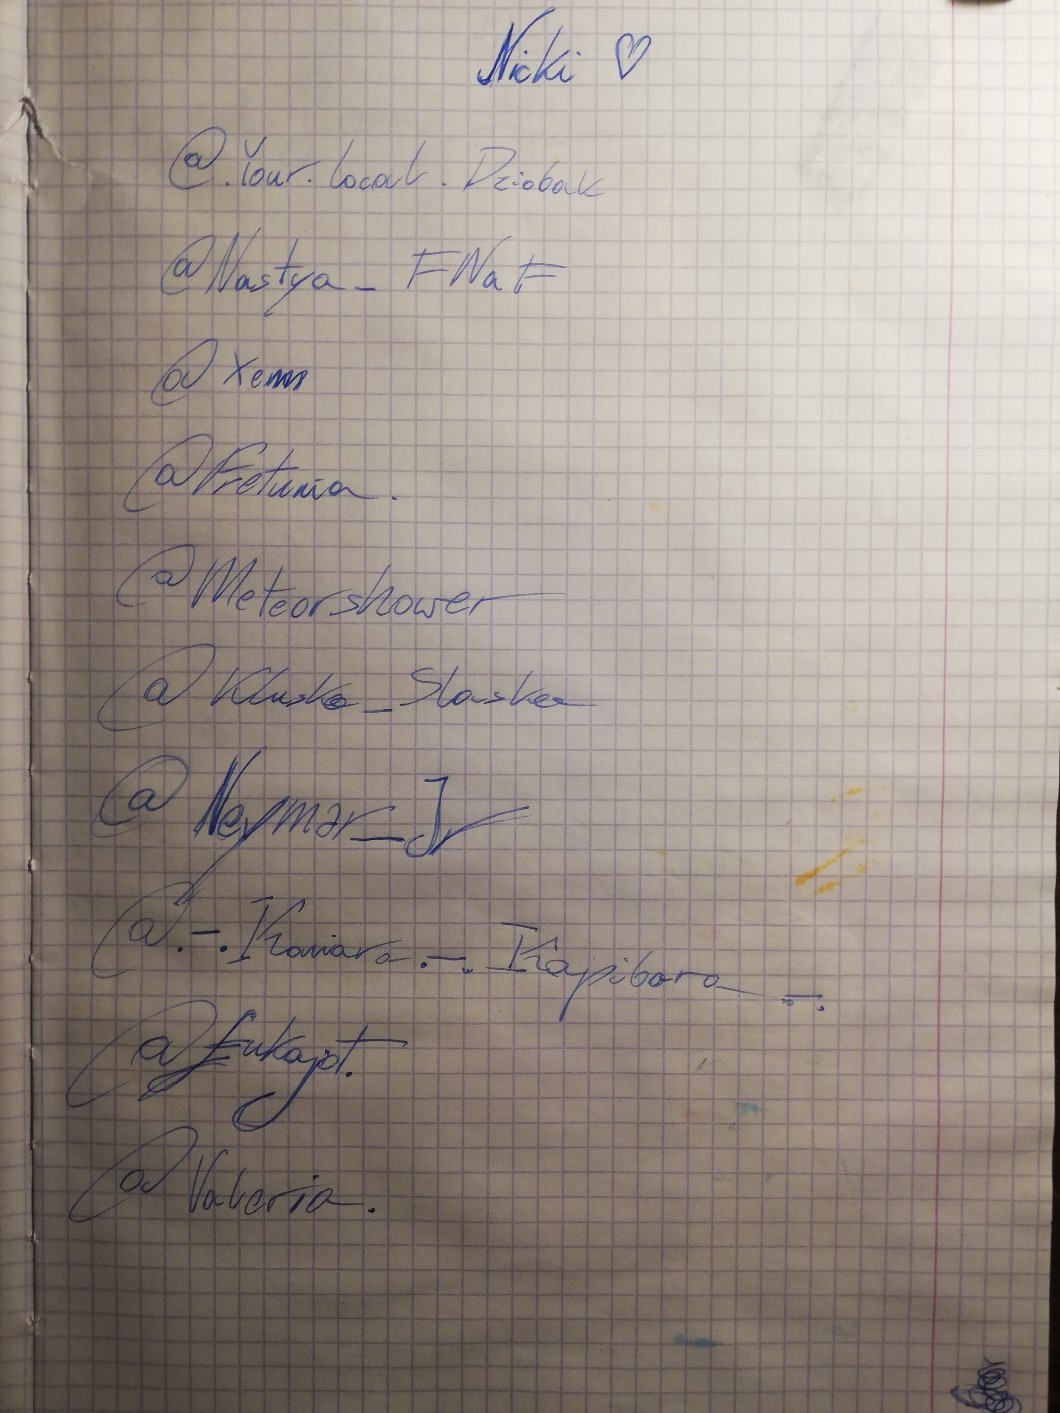 Nicki ♡
@.Your.local.Dziobak
@Nastya_FNaF
@Xemm
@Fretunia.
@Meteorshower
@Kluska_Slaska
@Neymar_Jr
@.-.Kawiara.-.Kapibara_-.
@Eukajot.
@Valeria.